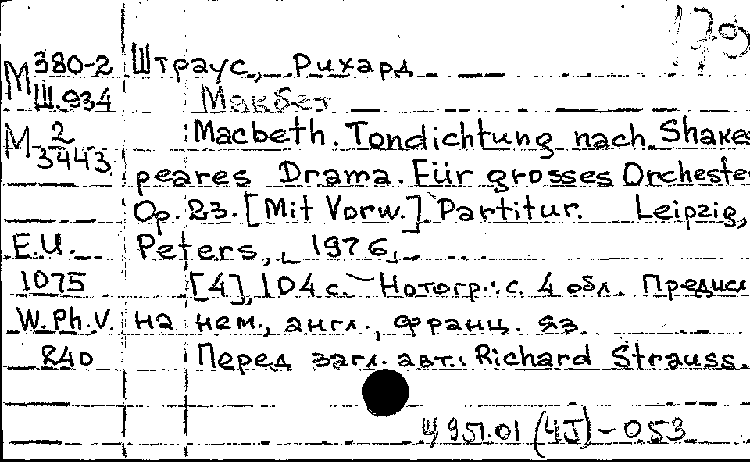 179
М 380-2 Штраус, Рихард
Ш 934 Макбет
М 2/3443 Macbeth. Tondichtung nach Shakes
peares Drama. Für grosses Orcheste
Op. 23. [Mit Vorw.] Partitur. Leipzig,
E.U. Peters, 1976.
1075 [4], 104 с. Нотогр.: с. 4 обл. Предисл
W.Ph.V. на нем., англ., франц. яз.
240 Перед загл. авт.: Richard Strauss.
Щ 951.01 (4J) - 053